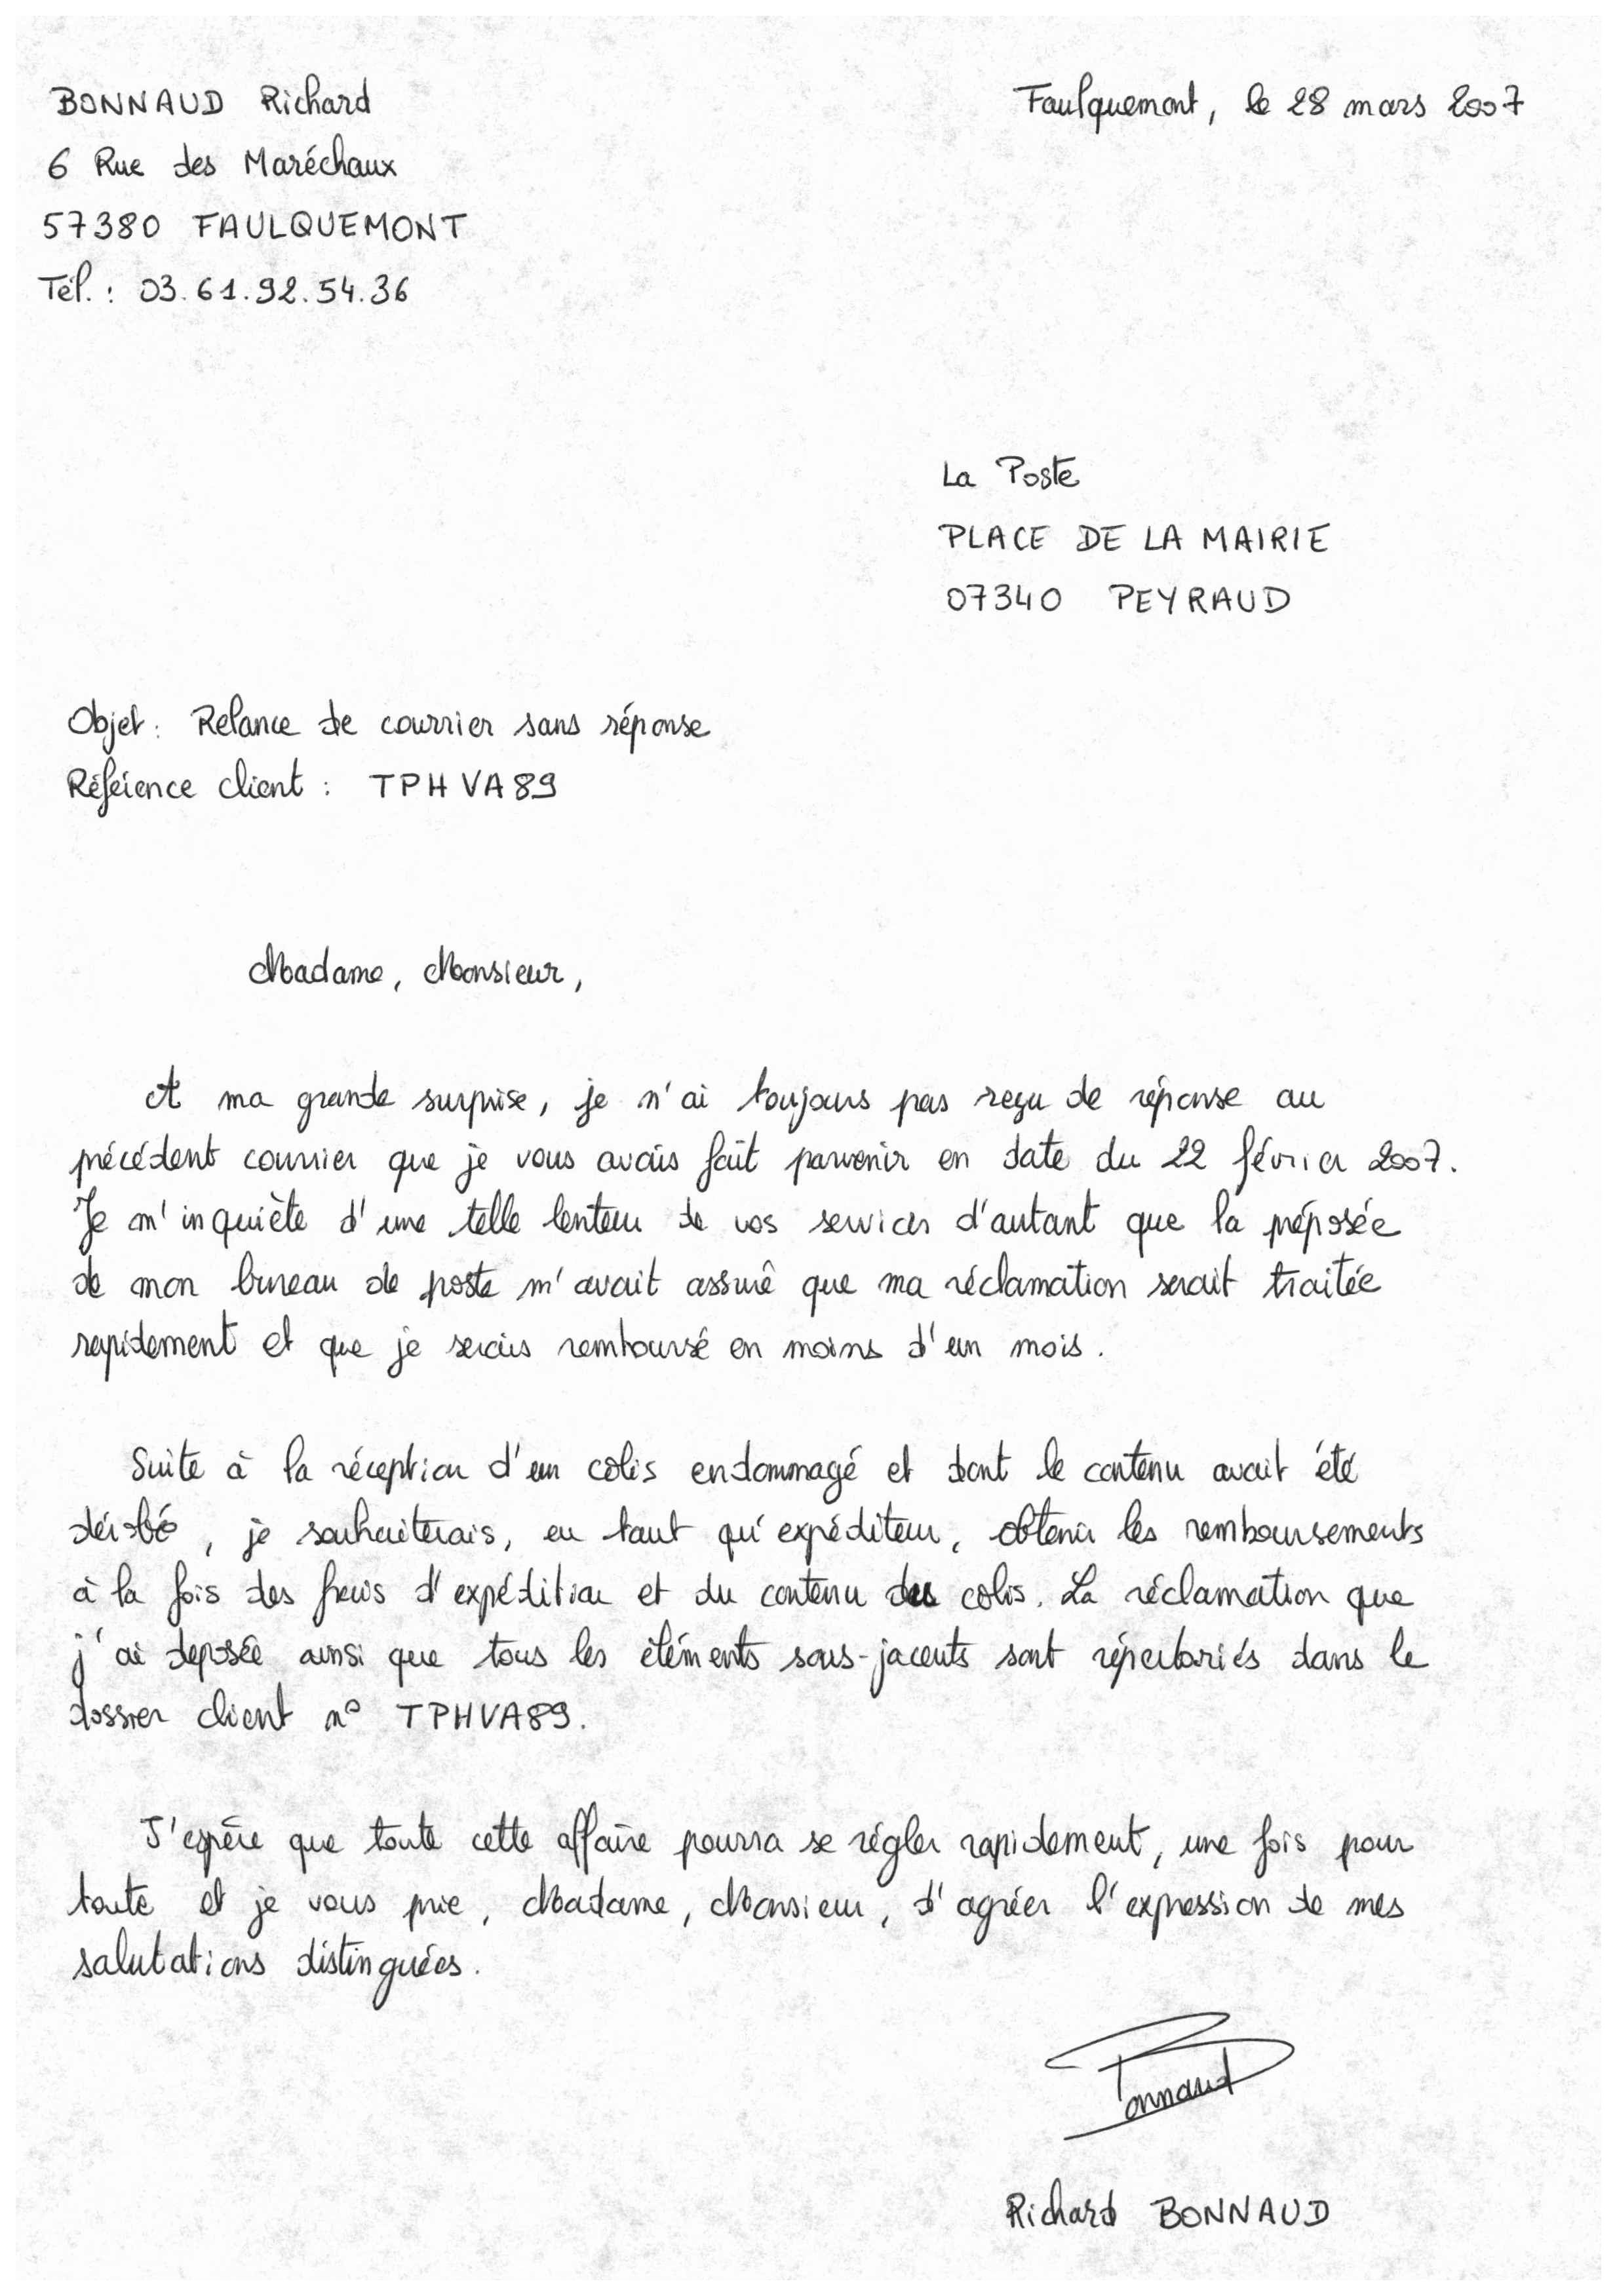 BONNAUD Richard
Faulquemont, le 28 mars 2007
6 Rue des Maréchaux
57380 FAULQUEMONT
Tél. : 03.61.92.54.36
La Poste
PLACE DE LA MAIRIE
07340 PEYRAUD
Objet : Relance de courrier sans réponse
Référence client : TPHVA89
Madame, Monsieur,
A ma grande surprise, je n'ai toujours pas reçu de réponse au
précédent courrier que je vous avais fait parvenir en date du 22 février 2007.
Je m'inquiète d'une telle lenteur de vos services d'autant que la préposée
de mon bureau de poste m'avait assuré que ma réclamation serait traitée
rapidement et que je serais remboursé en moins d'un mois.
Suite à la réception d'un colis endommagé et dont le contenu avait été
dérobé, je souhaiterais, en tant qu'expéditeur, obtenir les remboursements
à la fois des frais d'expédition et du contenu du colis. La réclamation que
j'ai déposée ainsi que tous les éléments sous-jacents sont répertoriés dans le
dossier client n° TPHVA89.
J'espère que toute cette affaire pourra se régler rapidement, une fois pour
toute et je vous prie, Madame, Monsieur, d'agréer l'expression de mes
salutations distinguées.
Bonnaud
Richard BONNAUD